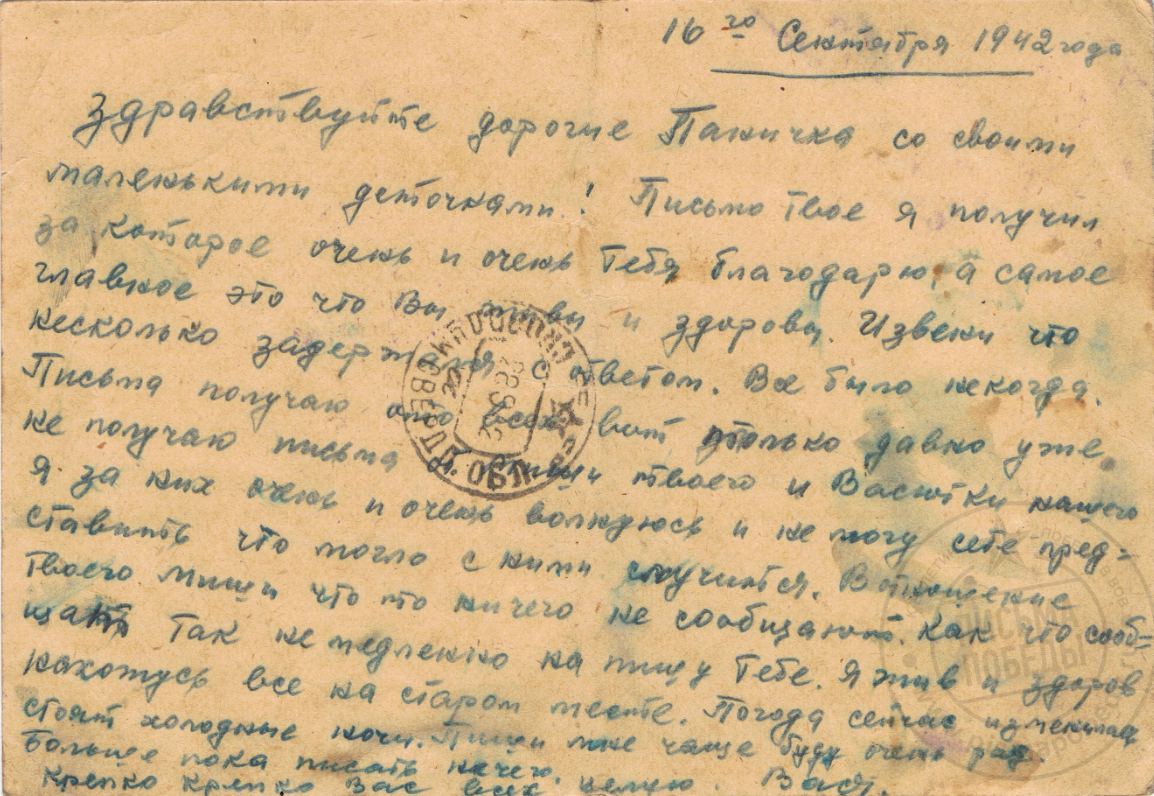 16го Сентября 1942 года
Здравствуйте дорогие Паничка со своими
маленькими деточками! Письмо твое я получил
за которое очень и очень тебя благодарю, а самое
главное это что Вы живы и здоровы. Извени что
несколько задержался с ответом. Все было некогда.
Письма получаю ото всех вот только давно уже
не получаю письма от Миши твоего и Васютки нашего
Я за них очень и очень волнуюсь и не могу себе пред-
ставить что могло с ними случится. В отношение
твоего миши что то ничего не сообщают. Как что сооб-
щать так немедленно напишу Тебе. Я жив и здоров
нахожусь все на старом месте. Погода сейчас изменилась
стоят холодные ночи. Пиши мне чаще буду очень рад.
Больше пока писать нечего.
Крепко крепко Вас всех целую. Вася.
СВЕРДЛ. ОБЛ.
22 9 42
ПИСЬМА
ПОБЕДЫ